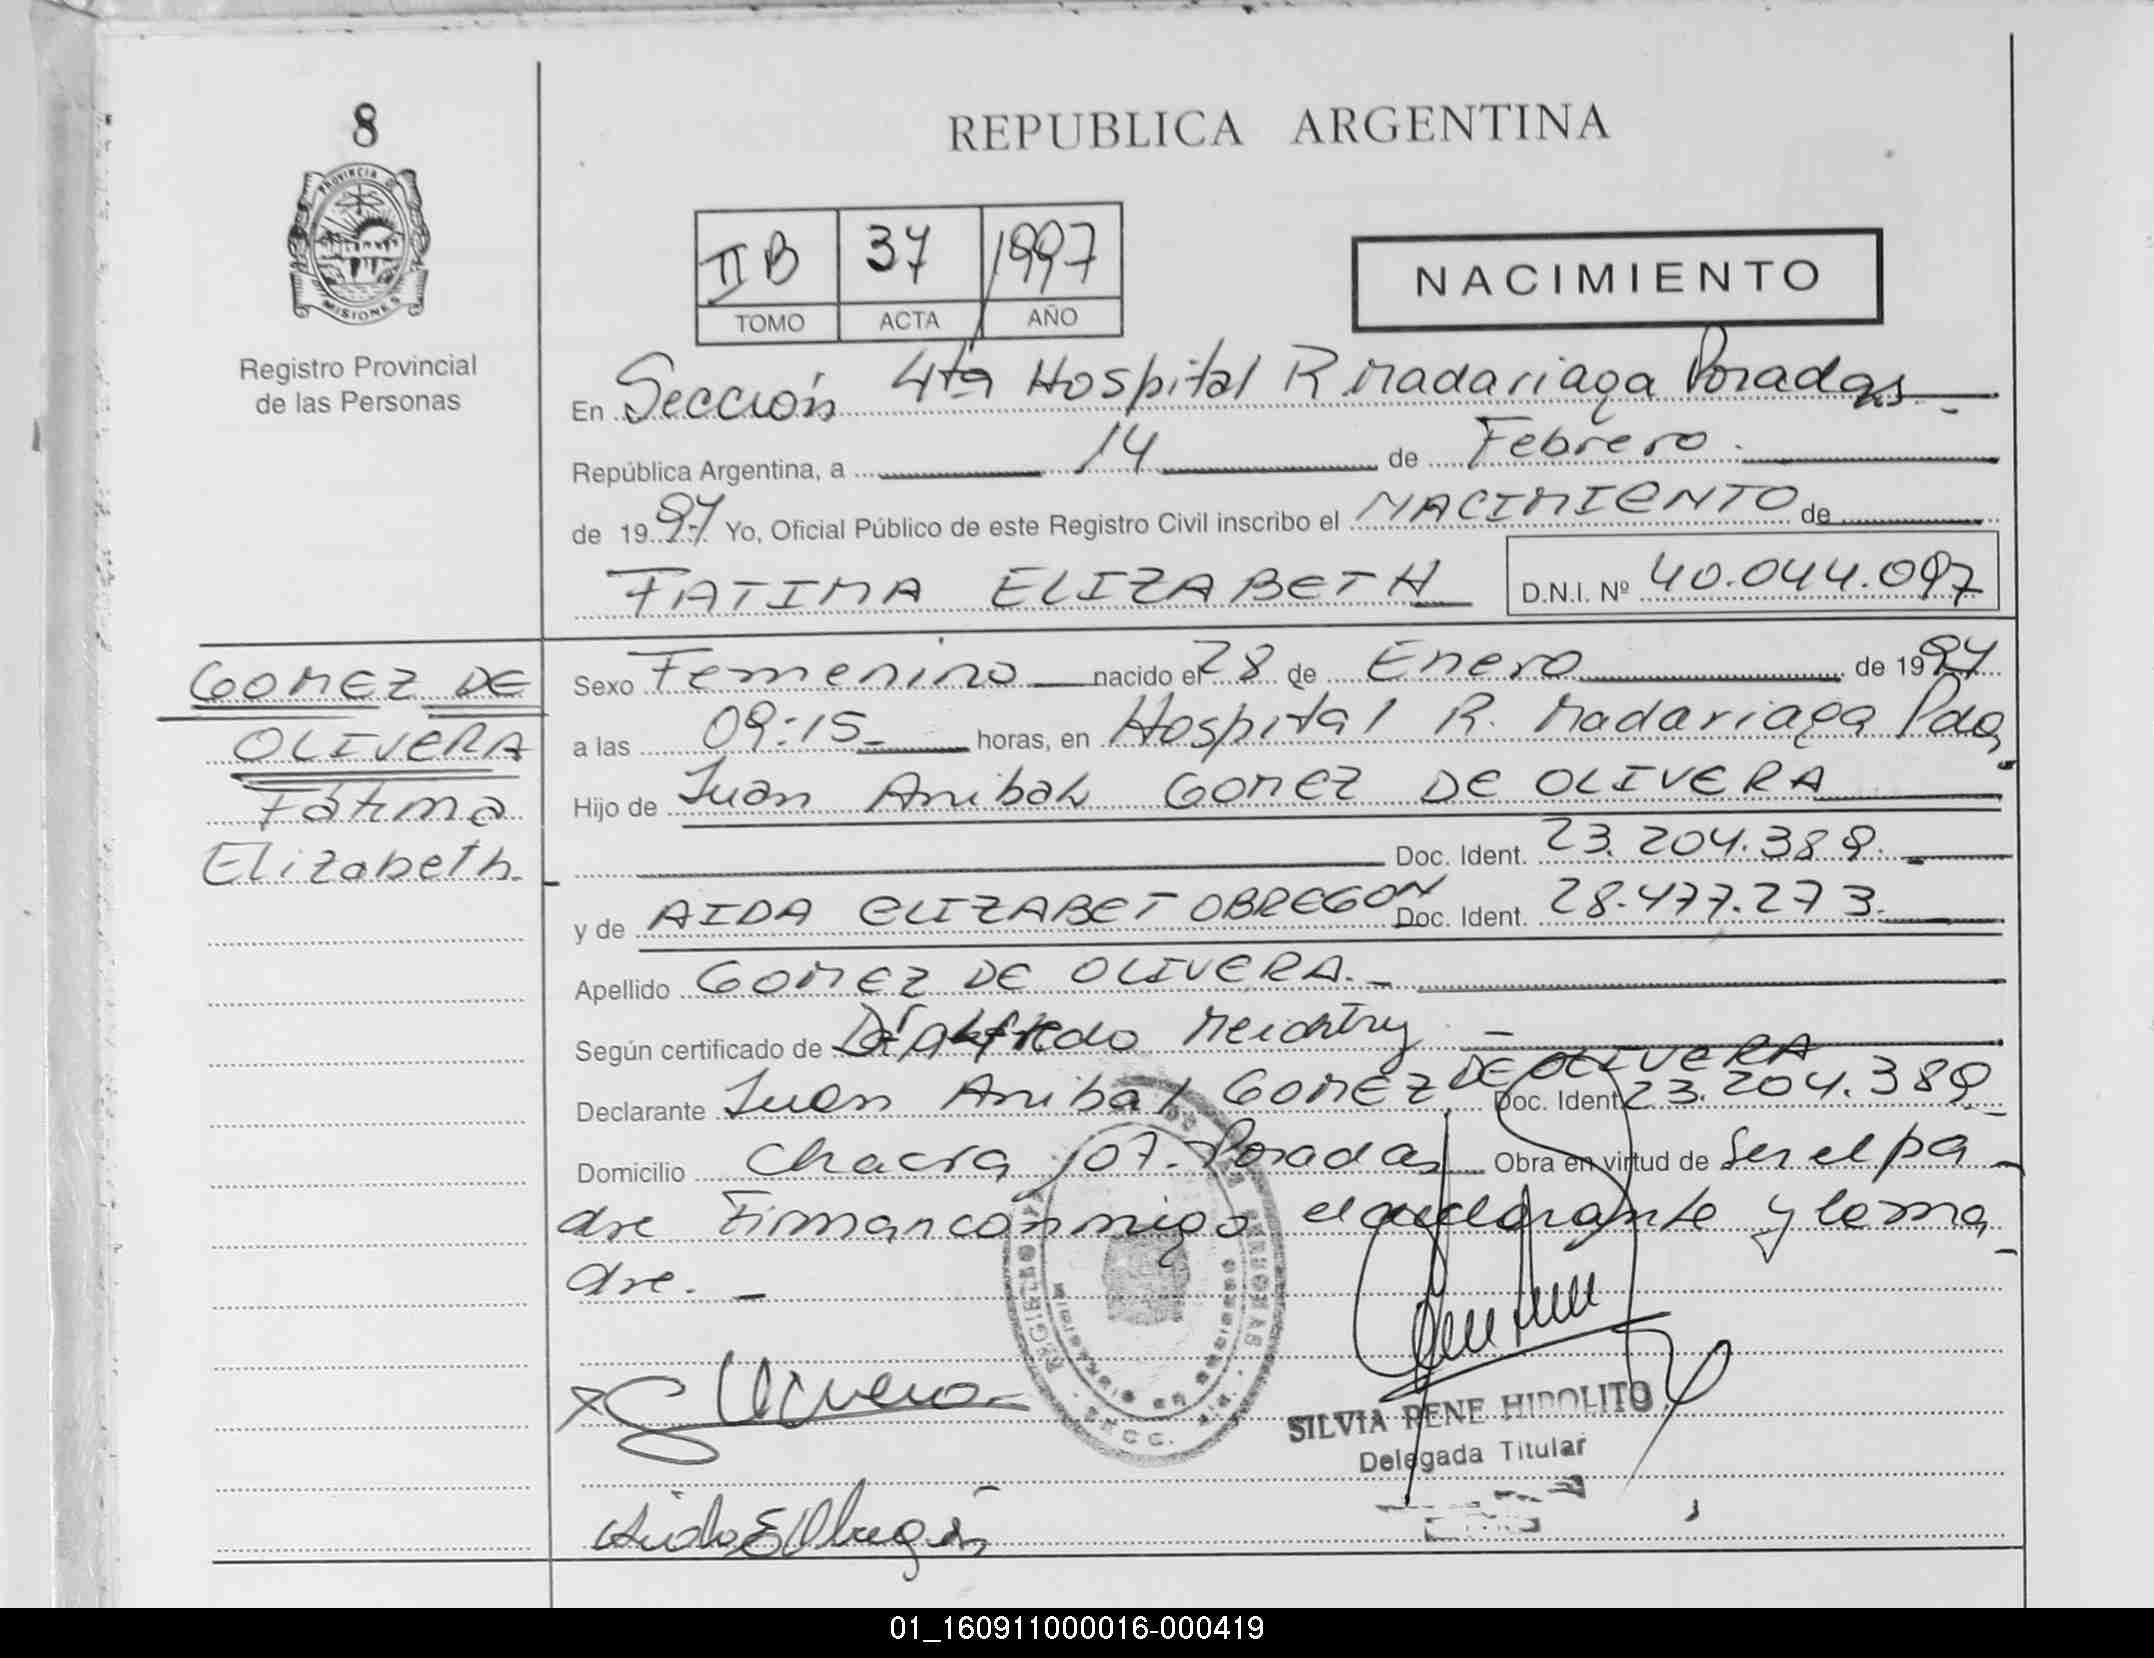 8
PROVINCIA DE
MISIONES
Registro Provincial
de las Personas
REPUBLICA ARGENTINA
II B 37 1997
TOMO ACTA AÑO
NACIMIENTO
En Sección 4ta Hospital R Madariaga Posadas
República Argentina, a 14 de Febrero
de 1997 Yo, Oficial Público de este Registro Civil inscribo el NACIMIENTO de
FATIMA ELIZABETH D.N.I. Nº 40.044.097
GOMEZ DE
OLIVERA
Fátima
Elizabeth
Sexo Femenino nacido el 28 de Enero de 1997
a las 09:15 horas, en Hospital R. Madariaga Pdas
Hijo de Juan Anibal GOMEZ DE OLIVERA
Doc. Ident. 23.204.389.
y de AIDA ELIZABET OBREGON Doc. Ident. 28.477.273.
Apellido GOMEZ DE OLIVERA.
Según certificado de Dr Alfredo Meichtry
Declarante Juan Anibal GOMEZ DE OLIVERA Doc. Ident. 23.204.389
Domicilio Chacra 107. Posadas Obra en virtud de Ser el pa
dre Firman conmigo el declarante y la ma
dre.
SILVIA RENE HIPOLITO
Delegada Titular
Aida E Obregón
01_160911000016-000419